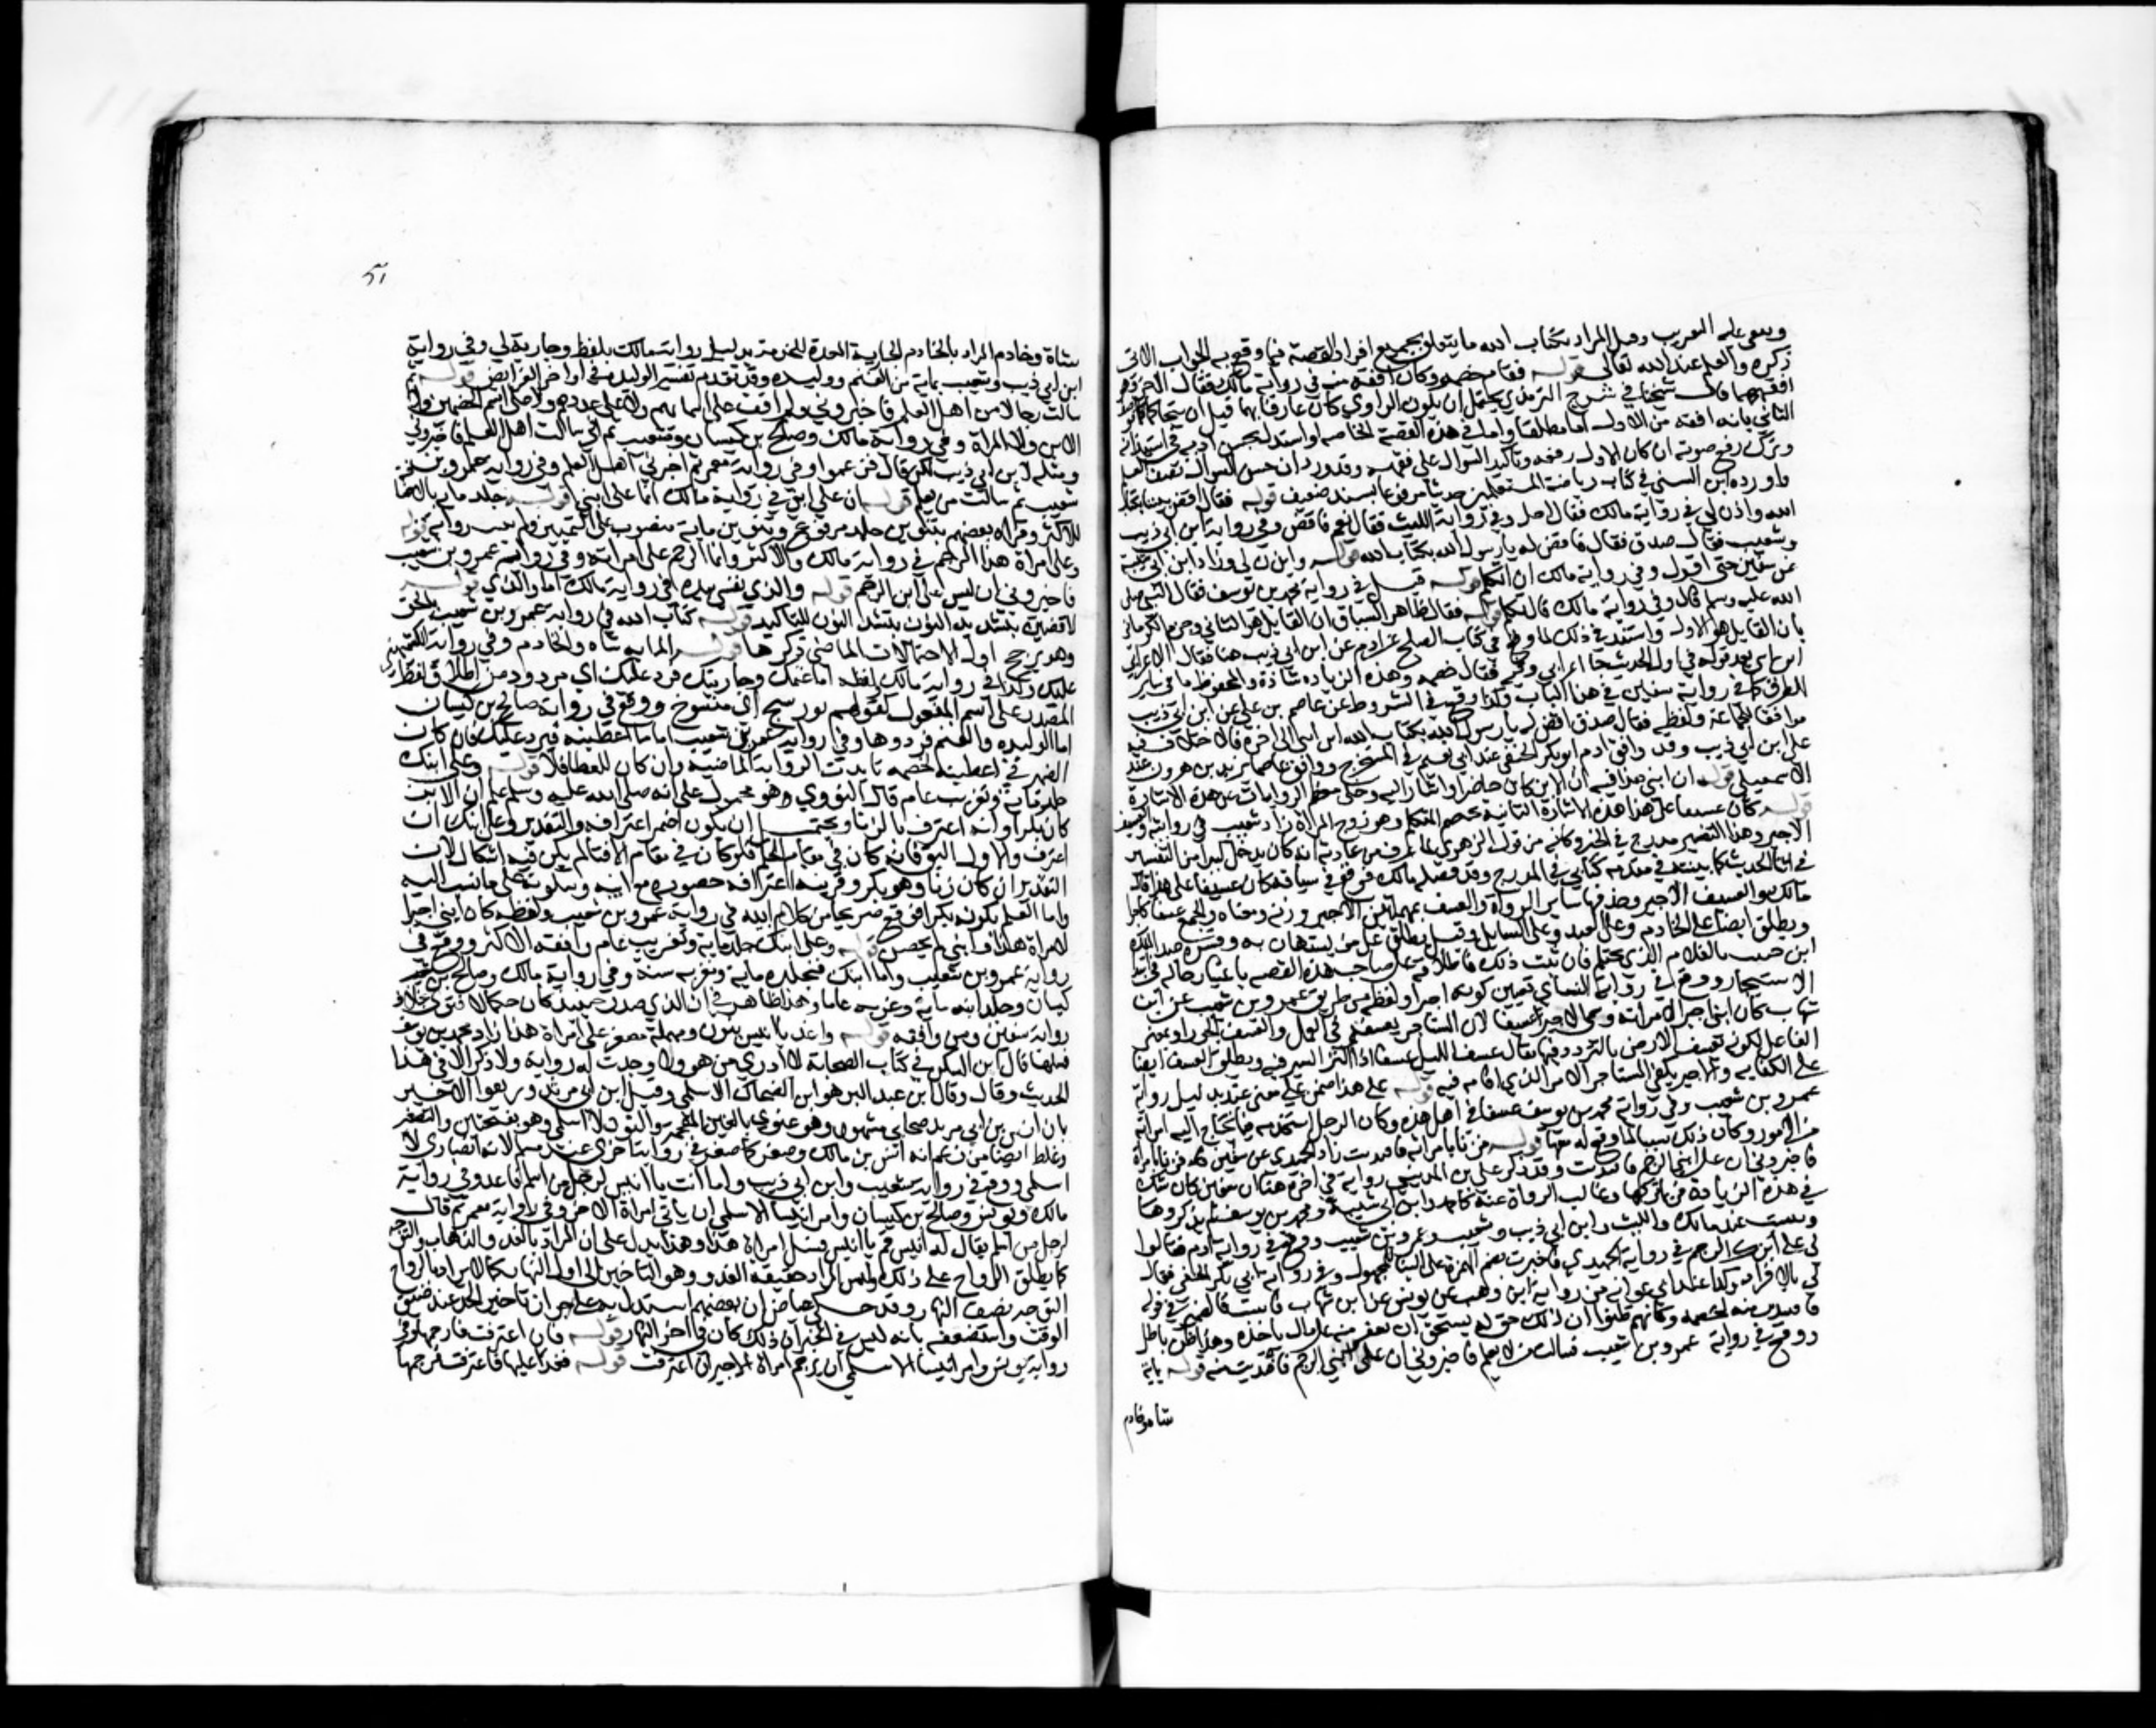 وبقي عليه التغريب وقيل المراد بكتاب الله ما يتعلق بجميع افراد القصة فما وقع به الجواب الاتي
ذكره والعلم عند الله تعالى قوله فقام خصمه وكان افقه منه في رواية مالك فقال الاخر وهو
افقههما قال شيخنا في شرح الترمذي يحتمل ان يكون الراوي كان عارفا بهما قبل ان يتحاكما
الثاني بانه افقه من الاول اما مطلقا واما في هذه القصة الخاصه او استدل بحسن ادبه في استئذانه
وترك رفع صوته ان كان الاول رفعه وتاكيد السوال على فقهه وقد ورد ان حسن السوال نصف العلم
واورده ابن السني في كتاب رياضة المتعلمين حديثا مرفوعا بسند ضعيف قوله فقال اقض بيننا بكتاب
الله واذن لي في رواية مالك فقال اجل وفي رواية الليث فقال نعم فاقض وفي رواية ابن ابي ذيب
وشعيب فقال صدق فقال فاقض له يارسول الله بكتاب الله قوله واذن لي وزاد ابن ابي شيبة
عن سفين حتى اقول وفي رواية مالك ان اتكلم قوله قيل في رواية محمد بن يوسف فقال النبي صلى
الله عليه وسلم قل وفي رواية مالك قال تكلم قوله فقال ظاهر السياق ان القايل هو الثاني وجزم الكرماني
بان القايل هو الاول واستند في ذلك لما وقع في كتاب الصلح عن ادم عن ابن ابي ذيب هنا فقال الاعرابي
ان ابني بعد قوله في اول الحديث جا اعرابي وفيه فقال خصمه وهذه الزياده شاذة والمحفوظ ما في ساير
الطرق كما في رواية سفين في هذا الباب وكذا وقع في الشروط عن عاصم بن علي عن ابن ابي ذيب
موافقا للجماعة ولفظه فقال صدق اقض له يارسول الله بكتاب الله ان ابني الى اخره فالاختلاف فيه
على ابن ابي ذيب وقد وافق ادم ابو بكر الحنفي عند ابي نعيم في المستخرج ووافق عاصما يزيد بن هرون عند
الاسمعيلي قوله ان ابني هذا فيه ان الابن كان حاضرا واشار اليه وخلى معظم الروايات عن هذه الاشارة
قوله كان عسيفا على هذا هذه الاشارة الثانية لخصم المتكلم وهو زوج المراة زاد شعيب في روايته والعسيف
الاجير وهذا التفسير مدرج في الخبر وكانه من قول الزهري لما عرف من عادته انه كان يدخل كثيرا من التفسير
في اثنا الحديث كما بينته في مقدمة كتابي في المدرج وقد فصله مالك فوقع في سياقه كان عسيفا على هذا قال
مالك والعسيف الاجير وحذفها ساير الرواة والعسيف بمهملتين الاجير وزنه ومعناه والجمع عسفا كاجرا
ويطلق ايضا على الخادم وعلى العبد وعلى السايل وقيل يطلق على من يستهان به وفسره عبد الملك
ابن حبيب بالغلام الذي لم يحتلم فان ثبت ذلك فاطلاقه على صاحب هذه القصه باعتبار حاله في ابتدا
الاستيجار ووقع في رواية النساي تعيين كونه اجيرا ولفظه من طريق عمرو بن شعيب عن ابن
شهاب كان ابني اجيرا لامراته وسمي الاجير عسيفا لان المستاجر يعسفه في العمل والعسف الجور او بمعنى
الفاعل لكونه يعسف الارض بالتردد فيها يقال عسف الليل عسفا اذا اكثر السير فيه ويطلق العسف ايضا
على الكفايه والاجير يكفي المستاجر الامر الذي اقامه فيه قوله على هذا ضمن على معنى عند بدليل رواية
عمرو بن شعيب وفي رواية محمد بن يوسف عسيفا في اهل هذا وكان الرجل استخدمه فيما تحتاج اليه امراته
من الامور وكان ذلك سببا لما وقع له معها قوله فزنى بامراته فافتديت زاد الحميدي عن سفين فزنى بامراة
فاخبروني ان على ابني الرجم فافتديت وقد ذكر علي بن المديني روايه في اخره هنا ان سفين كان يشك
في هذه الزيادة فربما تركها وغالب الرواة عنه كاحمد وابن ابي شيبة ومحمد بن يوسف لم يذكروها
وثبتت عند مالك والليث وابن ابي ذيب وشعيب وعمرو بن شعيب ووقع في رواية ادم فقالوا
لي على ابنك الرجم في رواية الحميدي فاخبرت بضم الهمزة على البنا للمجهول وفي رواية ابي بكر الحنفي فقال
لي بالافراد وكذا عند ابي عوانه من رواية ابن وهب عن يونس عن ابن شهاب فان ثبت فالضمير في قوله
فافتديت منه لخصمه وكانهم ظنوا ان ذلك حق له يستحق ان يعفو عنه على مال ياخذه وهذا ظن باطل
ووقع في رواية عمرو بن شعيب فسالت من لا يعلم فاخبروني ان على ابني الرجم فافتديت منه قوله بماية
شاة وخادم
٥١
شاة وخادم المراد بالخادم الجارية المعدة للخدمة بدليل رواية مالك بلفظ وجارية لي وفي رواية
ابن ابي ذيب وشعيب بماية من الغنم ووليده وقد تقدم تفسير الوليده في اواخر الفرايض قوله ثم
سالت رجالا من اهل العلم فاخبروني لم اقف على اسمايهم ولا على عددهم ولا على اسم الخصمين ولا
الابن ولا المراة وفي رواية مالك وصالح بن كيسان وشعيب ثم اني سالت اهل العلم فاخبروني
ومثله لابن ابي ذيب لكن قال فزعموا وفي رواية معمر ثم اخبرني اهل العلم وفي رواية عمرو بن
شعيب ثم سالت من يعلم قوله ان على ابني في رواية مالك انما على ابني قوله جلد ماية بالاضافة
للاكثر وقراه بعضهم بتنوين جلد مرفوع وتنوين ماية منصوب على التمييز ولم تثبت رواية قوله
وعلى امراة هذا الرجم في رواية مالك والاكثر وانما الرجم على امراته وفي رواية عمرو بن شعيب
فاخبروني ان ليس على ابني الرجم قوله والذي نفسي بيده في رواية مالك اما والذي قوله
لاقضين بتشديد النون للتاكيد قوله كتاب الله في رواية عمرو بن شعيب بالحق
وهو يرجح اول الاحتمالات الماضي ذكرها قوله الماية شاه والخادم وفي رواية الكشميهني
عليك وكذا في رواية مالك ولفظه اما غنمك وجاريتك فرد عليك اي مردود من اطلاق لفظ
المصدر على اسم المفعول كقولهم ثوب نسج اي منسوج ووقع في رواية صالح بن كيسان
اما الوليده والغنم فردوها وفي رواية عمرو بن شعيب اما ما اعطيته فيرد عليك فان كان
الضمير في اعطيته لخصمه تايدت الرواية الماضية وان كان للعطا فلا قوله وعلى ابنك
جلد ماية وتغريب عام قال النووي وهو محمول على انه صلى الله عليه وسلم علم ان الابن
كان بكرا وانه اعترف بالزنا ويحتمل ان يكون اضمر اعترافه والتقدير وعلى ابنك ان
اعترف والاول اليق فانه كان في مقام الحكم فلو كان في مقام الافتا لم يكن فيه اشكال لان
التقدير ان كان زنا وهو بكر وقرينة اعترافه حضوره مع ابيه وسكوته على ما نسب اليه
واما العلم بكونه بكرا فوقع صريحا من كلام ابيه في رواية عمرو بن شعيب ولفظه كان ابني اجيرا
لامراة هذا وابني لم يحصن قوله وعلى ابنك جلد ماية وتغريب عام وافقه الاكثر ووقع في
رواية عمرو بن شعيب واما ابنك فنجلده ماية ونغربه سنة وفي رواية مالك وصالح بن
كيسان وجلد ابنه ماية وغربه عاما وهذا ظاهر في ان الذي صدر حينيذ كان حكما لا فتوى بخلاف
رواية سفين ومن وافقه قوله واغد يا انيس بنون ومهملة مصغر على امراة هذا زاد محمد بن يوسف
فسلها قال ابن السكن في كتاب الصحابة لا ادري من هو ولا وجدت له رواية ولا ذكرا الا في هذا
الحديث وقال وقال ابن عبد البر هو ابن الضحاك الاسلمي وقيل ابن ابي مرثد وزيفوا الاخير
بان انيس بن ابي مرثد صحابي مشهور وهو غنوي بالغين المعجمه والنون لا اسلمي وهو بفتحتين والتصغير
وغلط ايضا من زعم انه انس بن مالك وصغر كما صغر في رواية اخرى عند مسلم لانه انصاري لا
اسلمي ووقع في رواية شعيب وابن ابي ذيب واما انت يا انيس لرجل من اسلم فاغد وفي رواية
مالك ويونس وصالح بن كيسان وامر انيسا الاسلمي ان ياتي امراة الاخر وفي رواية معمر ثم قال
لرجل من اسلم يقال له انيس قم يا انيس فسل امراة هذا وهذا يدل على ان المراد بالغدو الذهاب والتوجه
كما يطلق الرواح على ذلك وليس المراد حقيقة الغدو وهو التاخير الى اول النهار كما لا يراد بالرواح
التوجه نصف النهار وقد حكى عياض ان بعضهم استدل به على جواز تاخير الحد عند ضيق
الوقت واستضعفه بانه ليس في الخبر ان ذلك كان في اخر النهار قوله فان اعترفت فارجمها وفي
رواية يونس وامر انيسا الاسلمي ان يرجم امراة الاخر ان اعترفت قوله فغدا عليها فاعترفت فرجمها